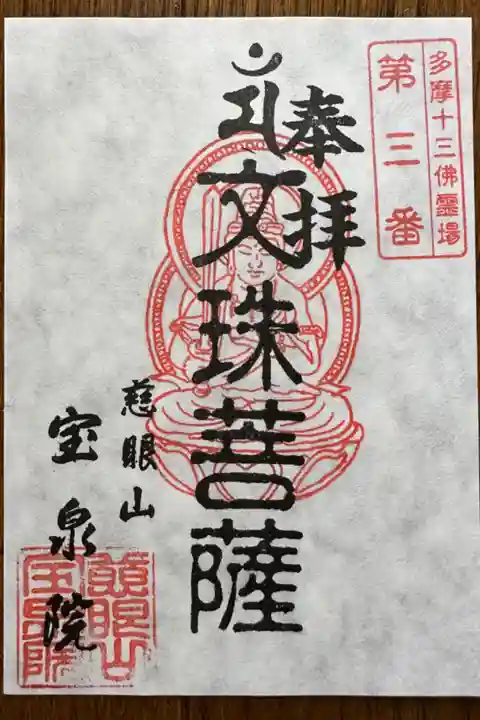 多摩十三佛霊場
第三番
奉拝
文珠菩薩
慈眼山
宝泉院
慈眼山
宝泉院